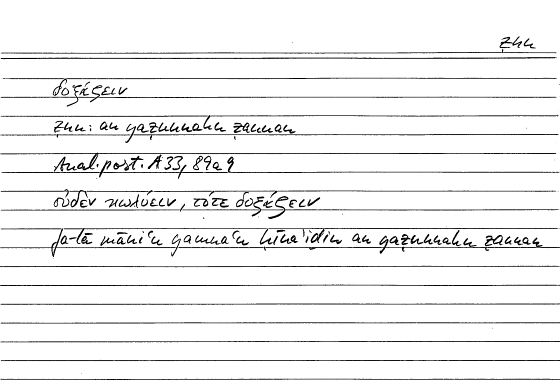 ẓnn
δοξάζειν
ẓnn: an yaẓunnahu ẓannan
Anal. post. A 33, 89a9
οὐδὲν κωλύειν, τότε δοξάζειν
fa-lā māniʿa yamnaʿu ḥīnaʾiḏin an yaẓunnahu ẓannan